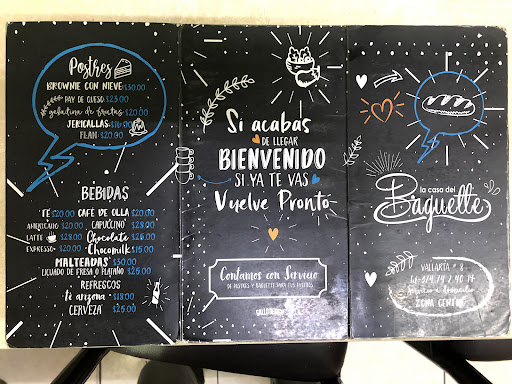 Postres
BROWNIE CON NIEVE $30.00
PAY DE QUESO $23.00
gelatina de frutas $20.00
JERICALLAS $16.00
FLAN $20.00
BEBIDAS
TÉ $20.00 CAFE DE OLLA $20.00
AMERICANO $20.00 CAPUCCINO $28.00
LATTE $28.00 Chocolate $25.00
EXPRESSO $20.00 Chocomilk $15.00
MALTEADAS $50.00
LICUADO DE FRESA O PLATANO $25.00
REFRESCOS
té arizona $18.00
CERVEZA $25.00
Si acabas
DE LLEGAR
BIENVENIDO
SI YA TE VAS
Vuelve Pronto
Contamos con Servicio
DE POSTRES Y BAGUETTE PARA TUS EVENTOS
la casa del
Baguette
VALLARTA # 8
Servicio a Domicilio
ZONA CENTRO